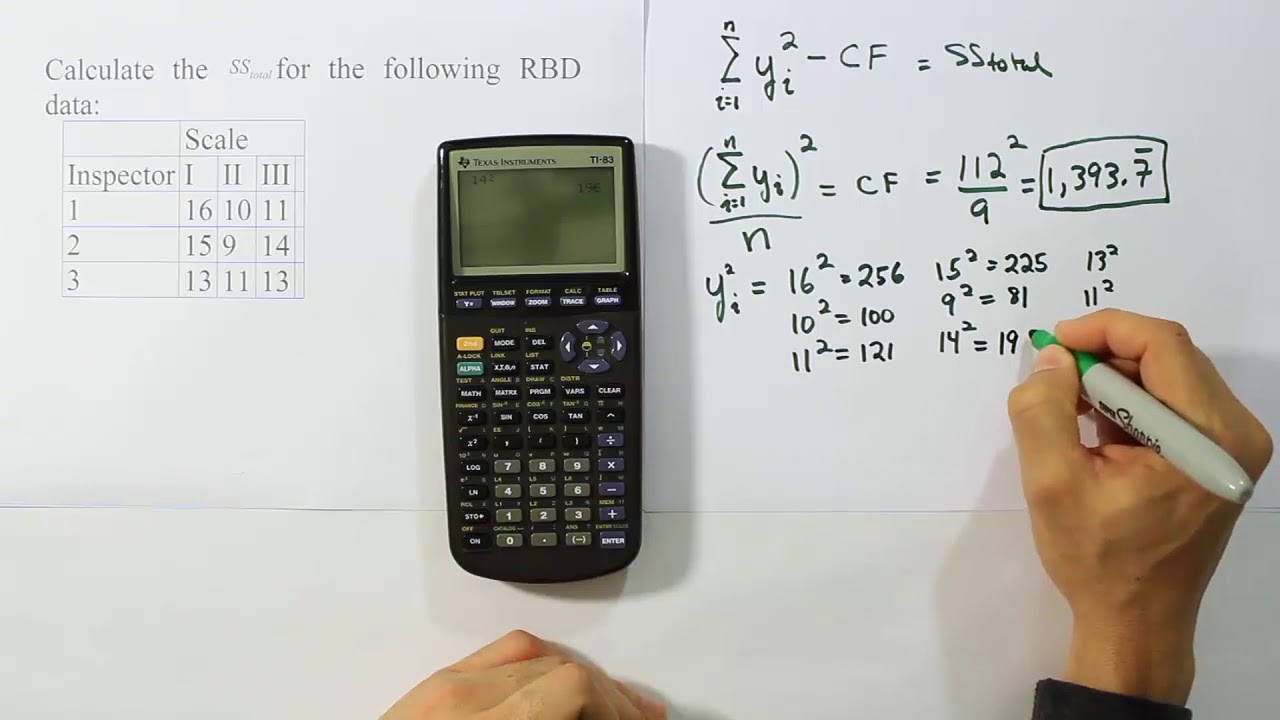 Calculate the SS total for the following RBD
data:
Scale
Inspector I II III
1 16 10 11
2 15 9 14
3 13 11 13
TEXAS INSTRUMENTS TI-83
14²
196
STAT PLOT TBLSET FORMAT CALC TABLE
Y= WINDOW ZOOM TRACE GRAPH
QUIT INS
2nd MODE DEL
A-LOCK LINK LIST
ALPHA X,T,Θ,n STAT
TEST A ANGLE B DRAW C DISTR
MATH MATRX PRGM VARS CLEAR
x⁻¹ SIN COS TAN ^
x² , ( ) ÷
LOG 7 8 9 ×
LN 4 5 6 −
RCL
STO▸ 1 2 3 +
OFF CATALOG
ON 0 . (−) ENTER
n
∑ yᵢ² − CF = SStotal
i=1
(n ∑ i=1 yᵢ)² / n = CF = 112² / 9 = 1,393.7̅
yᵢ² = 16² = 256 15² = 225 13²
10² = 100 9² = 81 11²
11² = 121 14² = 19
Sharpie